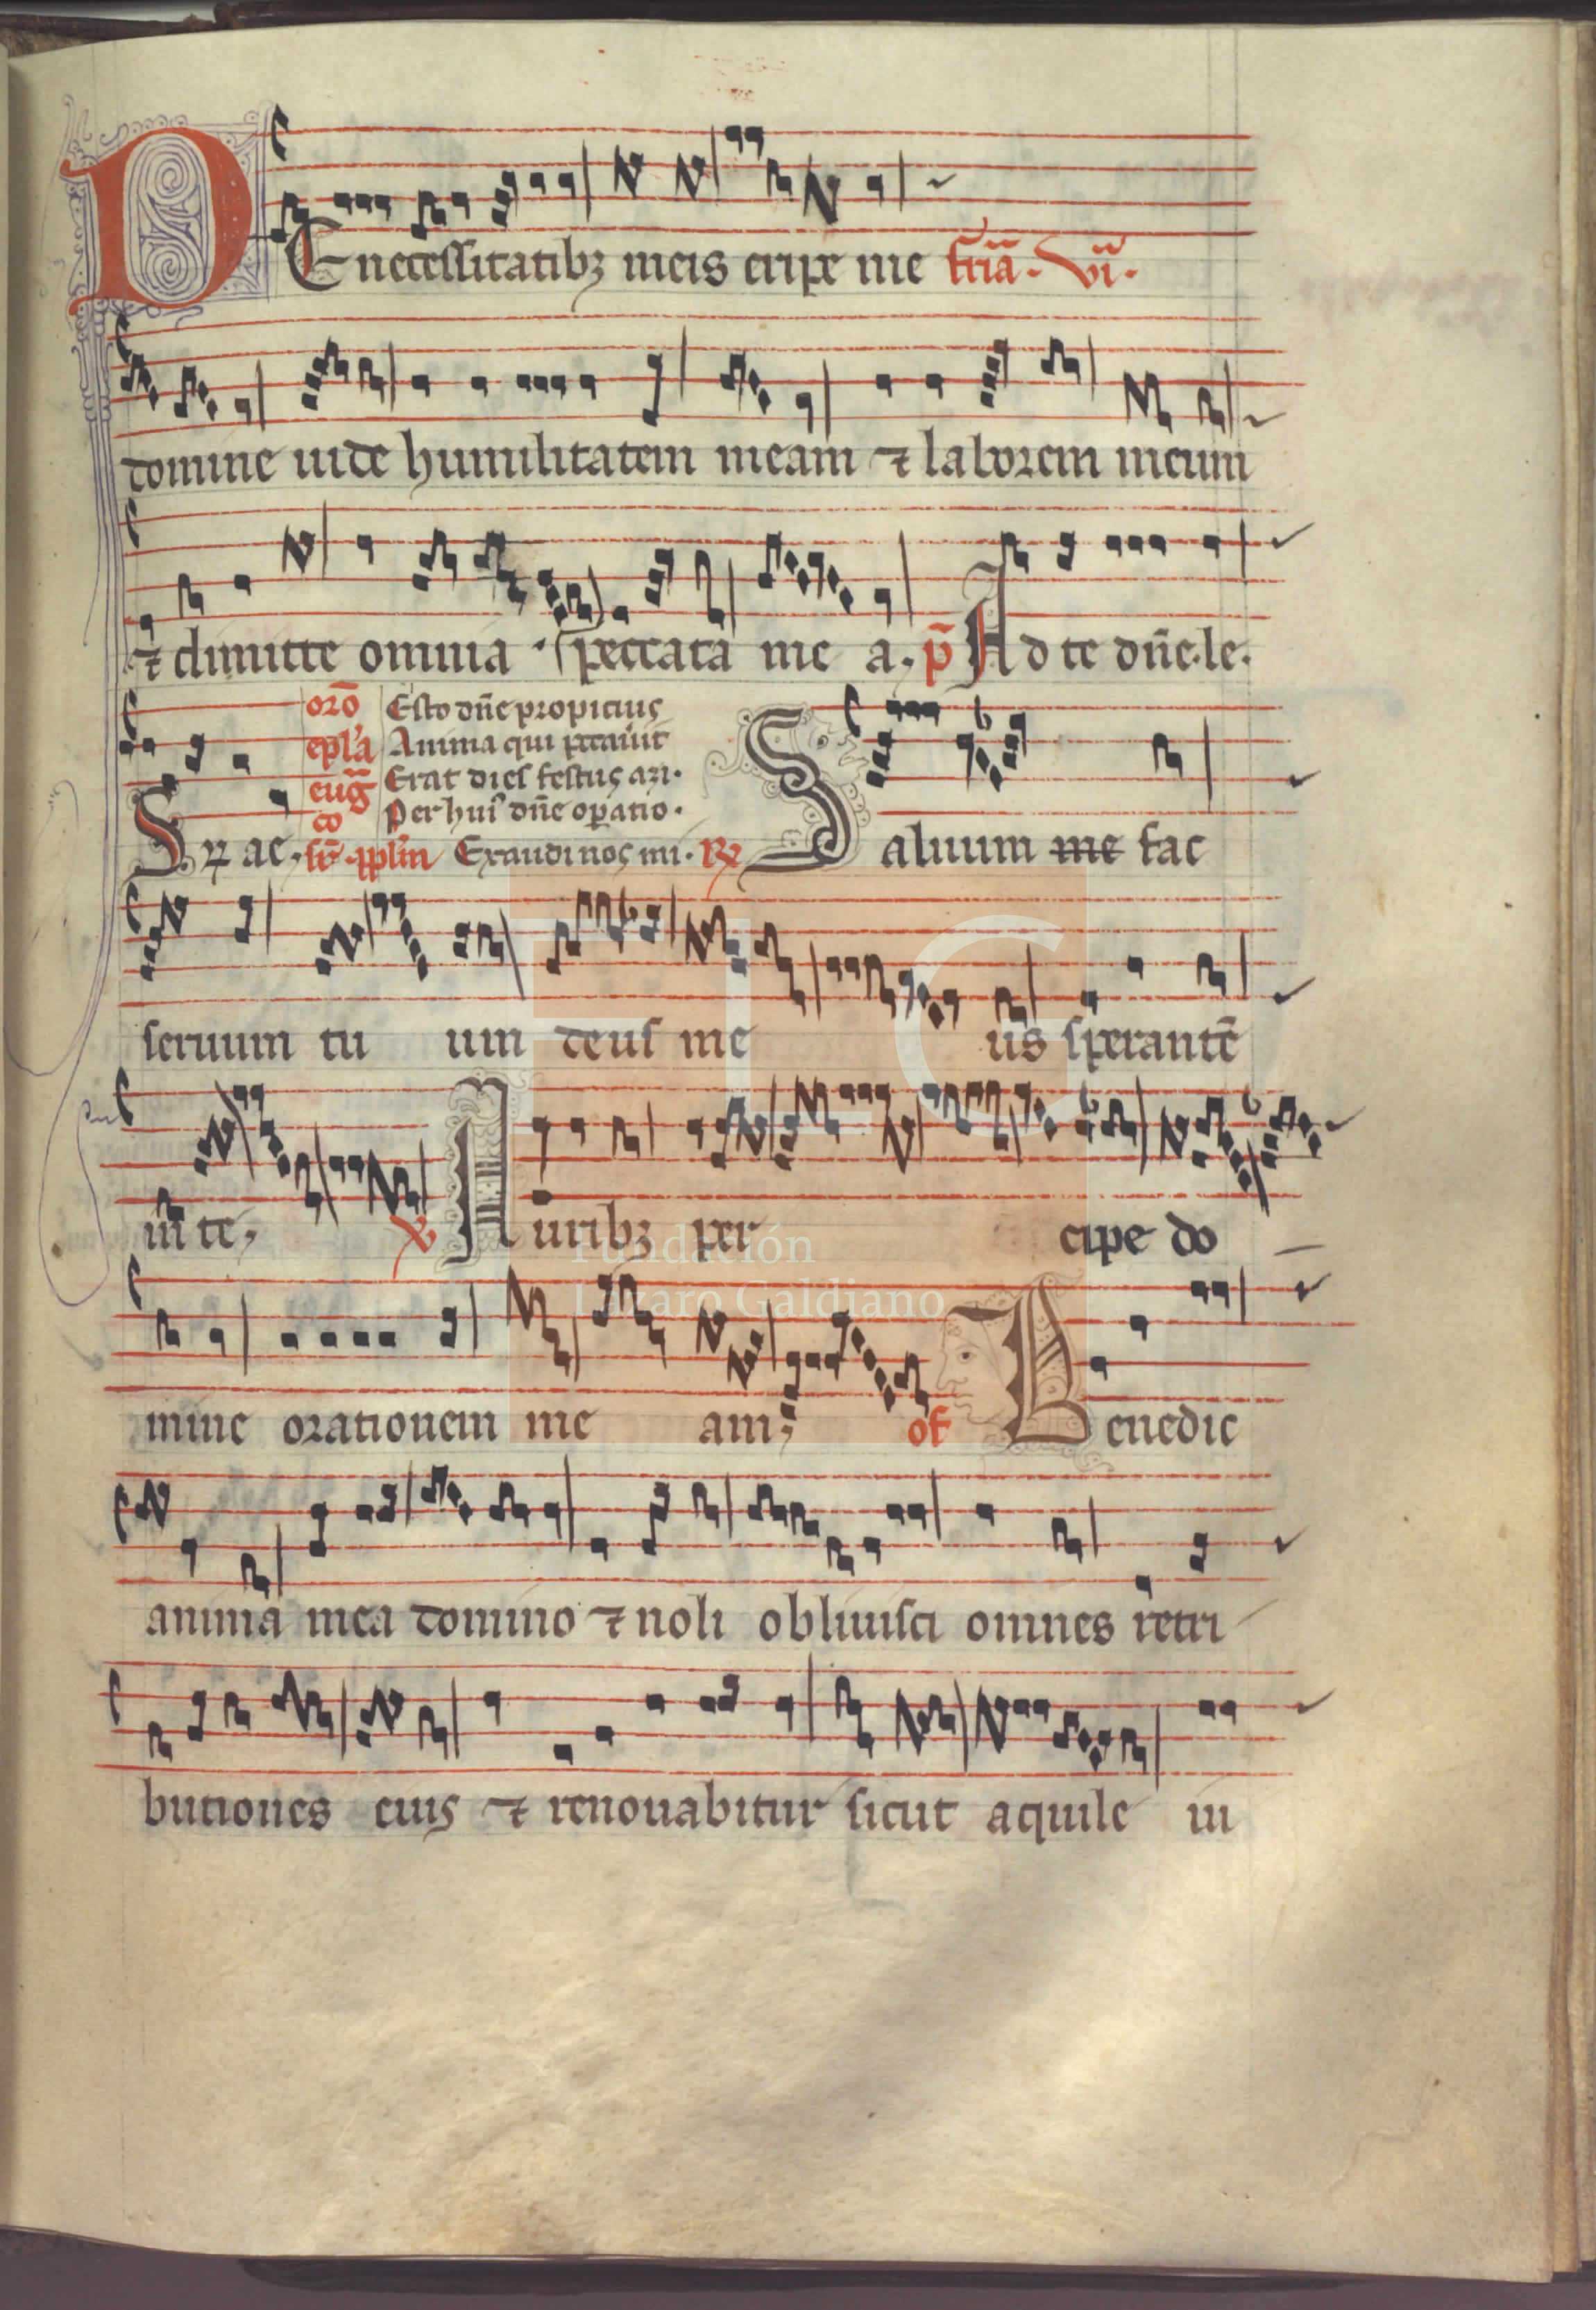 DE necessitatibꝫ meis eripe me fr̄iã. vı̃.
domine uide humilitatem meam ⁊ laborem meum
⁊ dimitte omnia peccata me a. p̄ Ad te dñe le.
orõ Esto dñe propicius
ep̄la Anima que peccauit
eug̃ Erat dies festus
co Per hui' dñe opatio.
Sꝝ ac. Exaudi nos mi. ℟ Saluum me fac
seruum tu um deus me us sperantẽ
in te, ℣ Auribꝫ per cipe do
mine orationem me am; of Benedic
anima mea domino ⁊ noli obliuisci omnes retri
butiones eius ⁊ renouabitur sicut aquile iu
FLG
Fundación
Lázaro Galdiano